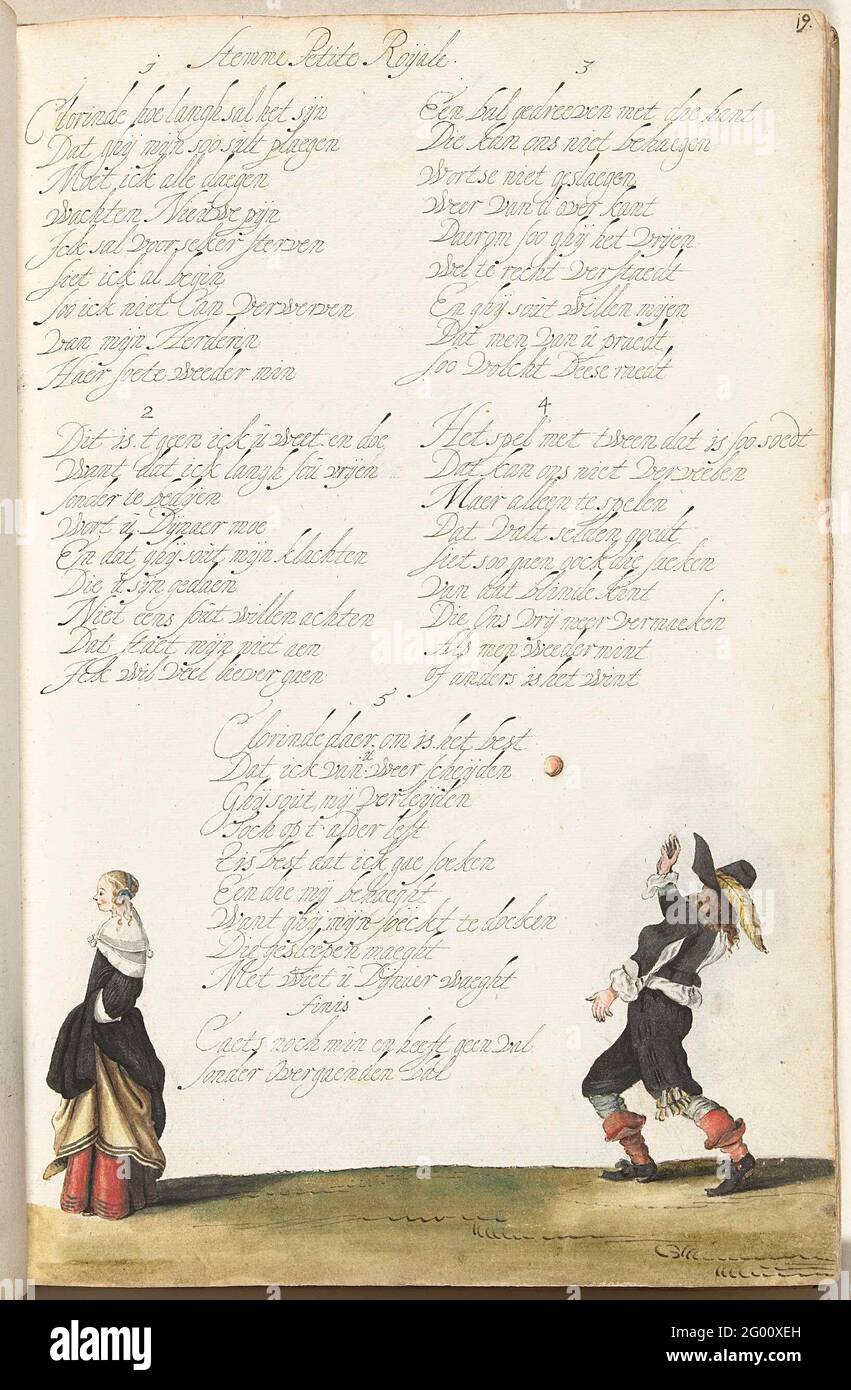 19.
Stemme Petite Royale.
1
Clorinde hoe langh sal het sijn
Dat ghij mijn soo sult plaegen
Moet ick alle daegen
wachten Nieuwe pijn
Ick sal voorseker sterven
siet ick al begin
soo ick niet Can verwerven
van mijn Herderin
Haer soete weeder min
2
Dit is .t geen ick ü weet en doe
Want dat ick langh soü vrijen
sonder te bedijen
Wort ü Dijnaer moe
En dat ghij soüt mijn klachten
Die ü sijn gedaen
Niet eens soüt willen achten
Dat staet mijn niet aen
Ick wil veel liever gaen
3
Een bal gedreeven met die hant
Die kan ons niet behaegen
wortse niet geslaegen
weer van d over kant
Daerom soo ghij het vrijen
wel te recht verstaedt
En ghij soüt willen mijen
Dat men van ü praedt
soo volcht Deese raedt
4
Het spel met tween dat is soo soedt
Dat kan ons niet verveelen
Maer alleen te spelen
Dat valt selden goedt
siet soo gaen oock die saeken
van dat blinde kint
Die Ons vrij meer vermaeken
Als men weedermint
of anders is het wint
5
Clorinde daer om is het best
Dat ick van ü weer scheijden
Ghij soüt mij verleijden
Toch op t alder lest
Tis best dat ick gae soeken
Een die mij behaeght
Want ghij mijn soeckt te doeken
Die gesleepen maeght
Met wiet ü Dijnaer waeght
finis
Caets noch min en heeft geen val
sonder overgaenden bal
alamy
Image ID: 2G00XEH
www.alamy.com